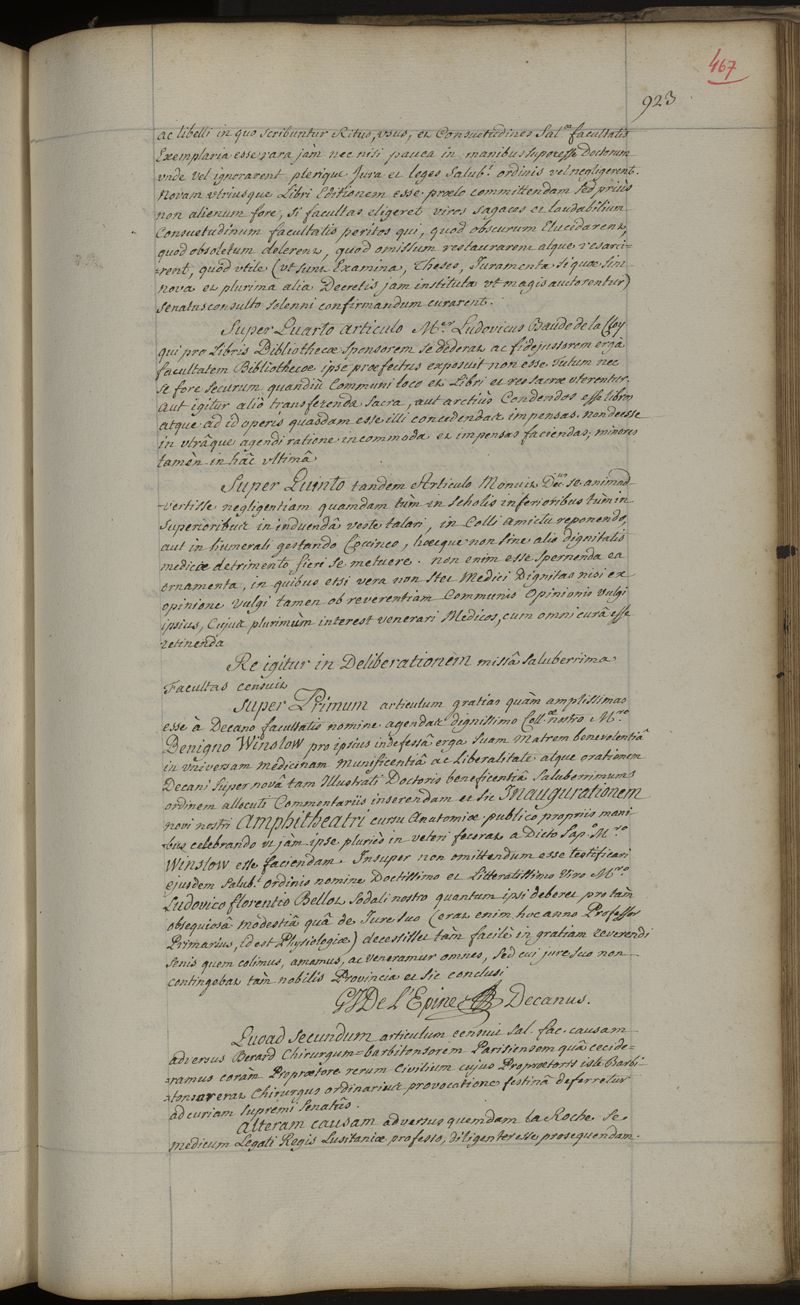 467
923
ac libelli in quo scribuntur Ritus, usus, et Consuetudines Sal.æ facultatis
Exemplaria esse rara jàm nec nisi pauca in manibus superesse Doctorum
unde vel ignorarent plerique Jura et leges Salub.i ordinis vel negligerent.
Novam utriusque Libri Editionem esse prælo committendam sed prius
non alienum fore, si facultas eligeret viros sagaces et laudabilium
Consuetudinum facultatis peritos qui, quod obscurum Elucidarent,
quod obsoletum delerent, quod omissum restaurarent atque resarci=
=rent, quod utile (ut sunt Examina, Theses, Juramenta si quæ sint
nova et plurima alia Decretis jam instituta ut magis auctorentur)
senatusconsulto solenni confirmandum curarent.
Super Quarto articulo M.er Ludovicus Baude de la Cloy
qui pro Libris Bibliothecæ sponsorem se dederat ac fidejussorem ergà
facultatem Bibliothecæ ipse præfectus exposuit non esse tutum nec
se fore securum quandiù Communi loco et Libri et res sacræ uterentur.
aut igitur aliò transferenda sacra, aut arctiùs Condendos esse libros
atque ad id operis quasdam esse illi concedendas impensas, non deesse
in utrâque agendi ratione incommoda et impensas faciendas, minores
tamèn in hâc ultimâ
Super Quinto tandem Articulo Monuit Dec.us se animad
=vertisse negligentiam quamdam tùm in scholis inferioribus tùm in
superioribus in induendâ veste talari, in Colli amictu reponendo,
aut in humerali gestando Coccineo, hæcque non sine alio dignitatis
medicæ detrimento fieri se metuere. non enim esse spernenda ea
ornamenta, in quibus etsi vera non stet Medici Dignitas nisi ex
opinione vulgi tamen ob reverentiam Communis Opinionis vulgi
ipsius, Cujus plurimùm interest venerari Medicos, cum omni curâ esse
retinenda
Re igitur in Deliberationem missâ saluberrima
Facultas censuit
Super Primum articulum gratias quàm amplissimas
esse à Decano facultatis nomine agendas dignissimo Coll.æ nostro M.ro
Benigno Winslow pro ipsius indefessâ erga suam Matrem benevolentiâ
in universam medicinam munificentiâ ac Liberalitate atque orationem
Decani super novâ tam Illustrati Doctoris beneficentiâ Saluberrimum
ordinem allocuti Commentariis inserendam et sic Inaugurationem
novi nostri Amphitheatri cursu Anatomiæ publico propriis mani
bus celebrando ut jàm ipse pluriès in veteri fecerat a Dicto Sap. M.ro
Winslow esse faciendam. Insuper non omittendum esse testificari
ejusdem Salub.i ordinis nomine Doctissimo et Litteratissimo Viro M.ro
Ludovico florentio Bellot sodali nostro quantum ipsi deberet pro tàm
obsequiosâ modestiâ quâ de Jure suo (erat enim hoc anno Professor
Primarius, id est Physiologiæ) decessisset tàm facilè in gratiam reverendi
senis quem colimus, amamus, ac veneramur omnes, sed cui jure suo non
contingebat tàm nobilis Provincia et sic conclusi
GJ De l'Epine Decanus.
Quoad secundum articulum censuit Sal. fac. causam
adversus Berard Chirurgum=barbitonsorem Parisiensem quâ cecide=
=ramus coràm Proprætore rerum Civilium cujus Proprætoris iste Barbi=
=tonsor erat Chirurgus ordinarius provocatione festinâ deferretur
ad curiam supremi senatûs.
Alteram causam adversus quemdam la Roche se
medicum Legati Regis Lusitaniæ professo, diligenter esse prosequendam.